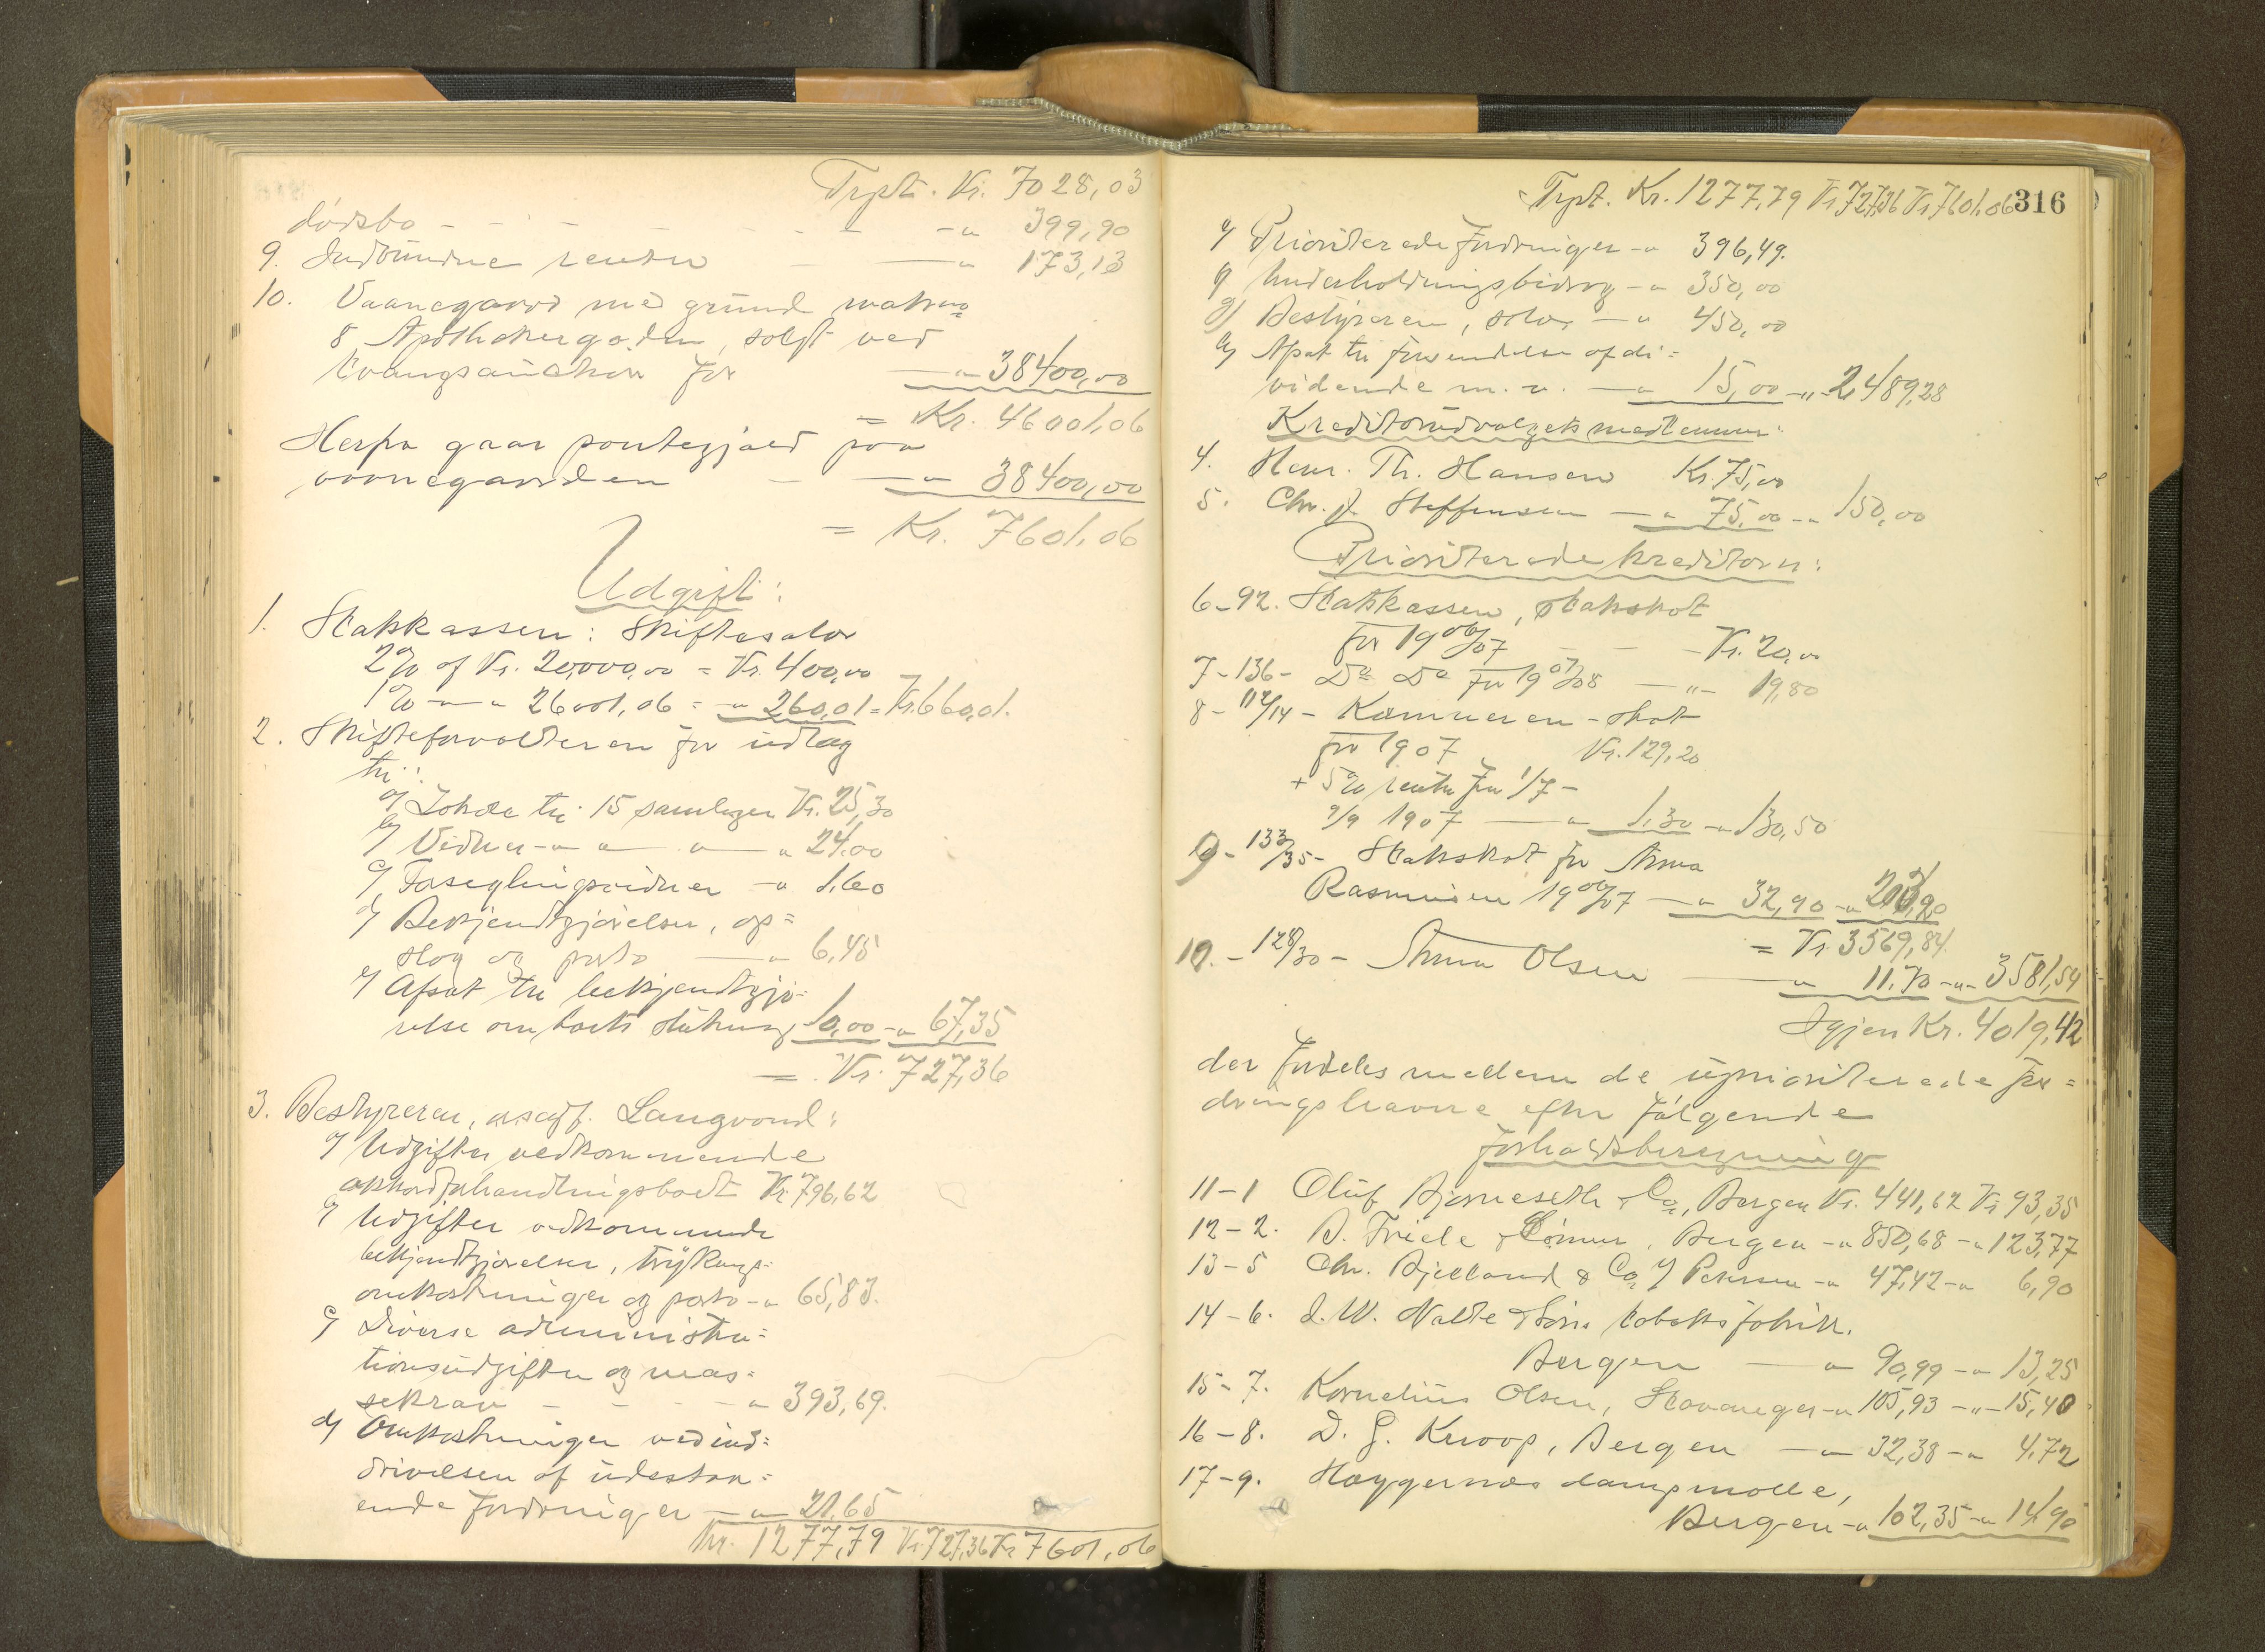 Trpt. Kr. 7028,03
dødsbo - - - - - - - -„ 399,90
9. Indvundne renter - — „ 173,13
10. Vaanegaard med grund matr. no
8 Apothekergaden, solgt ved
tvangsauction for — „ 38400,00
= Kr. 46001,06
Herfra gaar pantegjæld paa
vaanegaarden - — „ 38400,00
= Kr. 7601,06
Udgift:
1. Statskassen: Skiftesalær
2% af Kr. 20,000,00 = Kr. 400,00
1% — „ 26001,06 = - „ 260,01 = Kr. 660,01.
2. Skifteforvalteren for udlæg
til:
a) Lokale til 15 samlinger Kr. 25,30
b) Vidner - „ „ — „ — „ 24,00
c) Forseglingsvidner - „ 1,60
d) Bekjendtgjørelser, op=
slag og porto — „ 6,45
e) Afsat til bekjendtgjø=
relse om boets slutning 10,00 - „ 67,35
= Kr. 727,36
3. Bestyreren, o.r.sagf. Langvand:
a) Udgifter vedkommende
akkordforhandlingsboet Kr. 796,62
b) Udgifter vedkommende
bekjendtgjørelser, trykings=
omkostninger og porto - „ 65,83.
c) Diverse administra=
tionsudgifter og mas=
sekrav - - - - „ 393,69.
d) Omkostninger ved ind=
drivelsen af udestaa=
ende fordringer — „ 21,65
Kr. 1277,79 Kr. 727,36 Kr. 7601,06
Trpt. Kr. 1277,79 Kr. 727,36 Kr. 7601,06 316
e) Prioriterede fordringer - „ 396,49.
f) Underholdningsbidrag - „ 350,00
g) Bestyreren, salær — „ 450,00
h) Afsat til fremsendelse af di=
vidende m. v. — „ 15,00 - „ - 2489,28
Kreditorudvalgets medlemmer:
4. Henr. Th. Hansen Kr. 75,00
5. Chr. J. Steffensen — „ 75,00 - „ 150,00
Prioriterede kreditorer:
6 - 92. Statskassen, statsskat
for 1906/07 - - - Kr. 20,00
7 - 136 - Do Do for 1907/08 — „ - 19,80
8 - 112/14 - Kæmneren - skat
for 1907 Kr. 129,20
+ 5% rente fra 1/7 -
9/9 1907 — „ 1,30 - „ 130,50
9 - 133/35 - Statsskat for Anna
Rasmusen 1906/07 — „ 32,90 - „ 203,20
= Kr. 3569,84.
10. - 128/30 - Anna Olsen — „ 11,70 - „ - 3581,54
Igjen Kr. 4019,42
der fordeles mellem de uprioriterede for=
dringshavere efter følgende
forholdsberegning
11 - 1 Oluf Bjørneseth & Co., Bergen Kr. 441,62 Kr. 93,35
12 - 2. B. Friele & Sønner, Bergen - „ 850,68 - „ 123,77
13 - 5 Chr. Bjelland & Co. Petersen - „ 47,42 - „ 6,90
14 - 6. d. W. Nalte & Søns tobaksfabrik.
Bergen — „ 90,99 - „ 13,25
15 - 7. Kornelius Olsen, Stavanger - „ 105,93 - „ - 15,40
16 - 8. D. G. Knoop, Bergen — „ 32,38 - „ 4,72
17 - 9. Hæggernæs dampmølle,
Bergen - „ 102,35 - „ 14,90